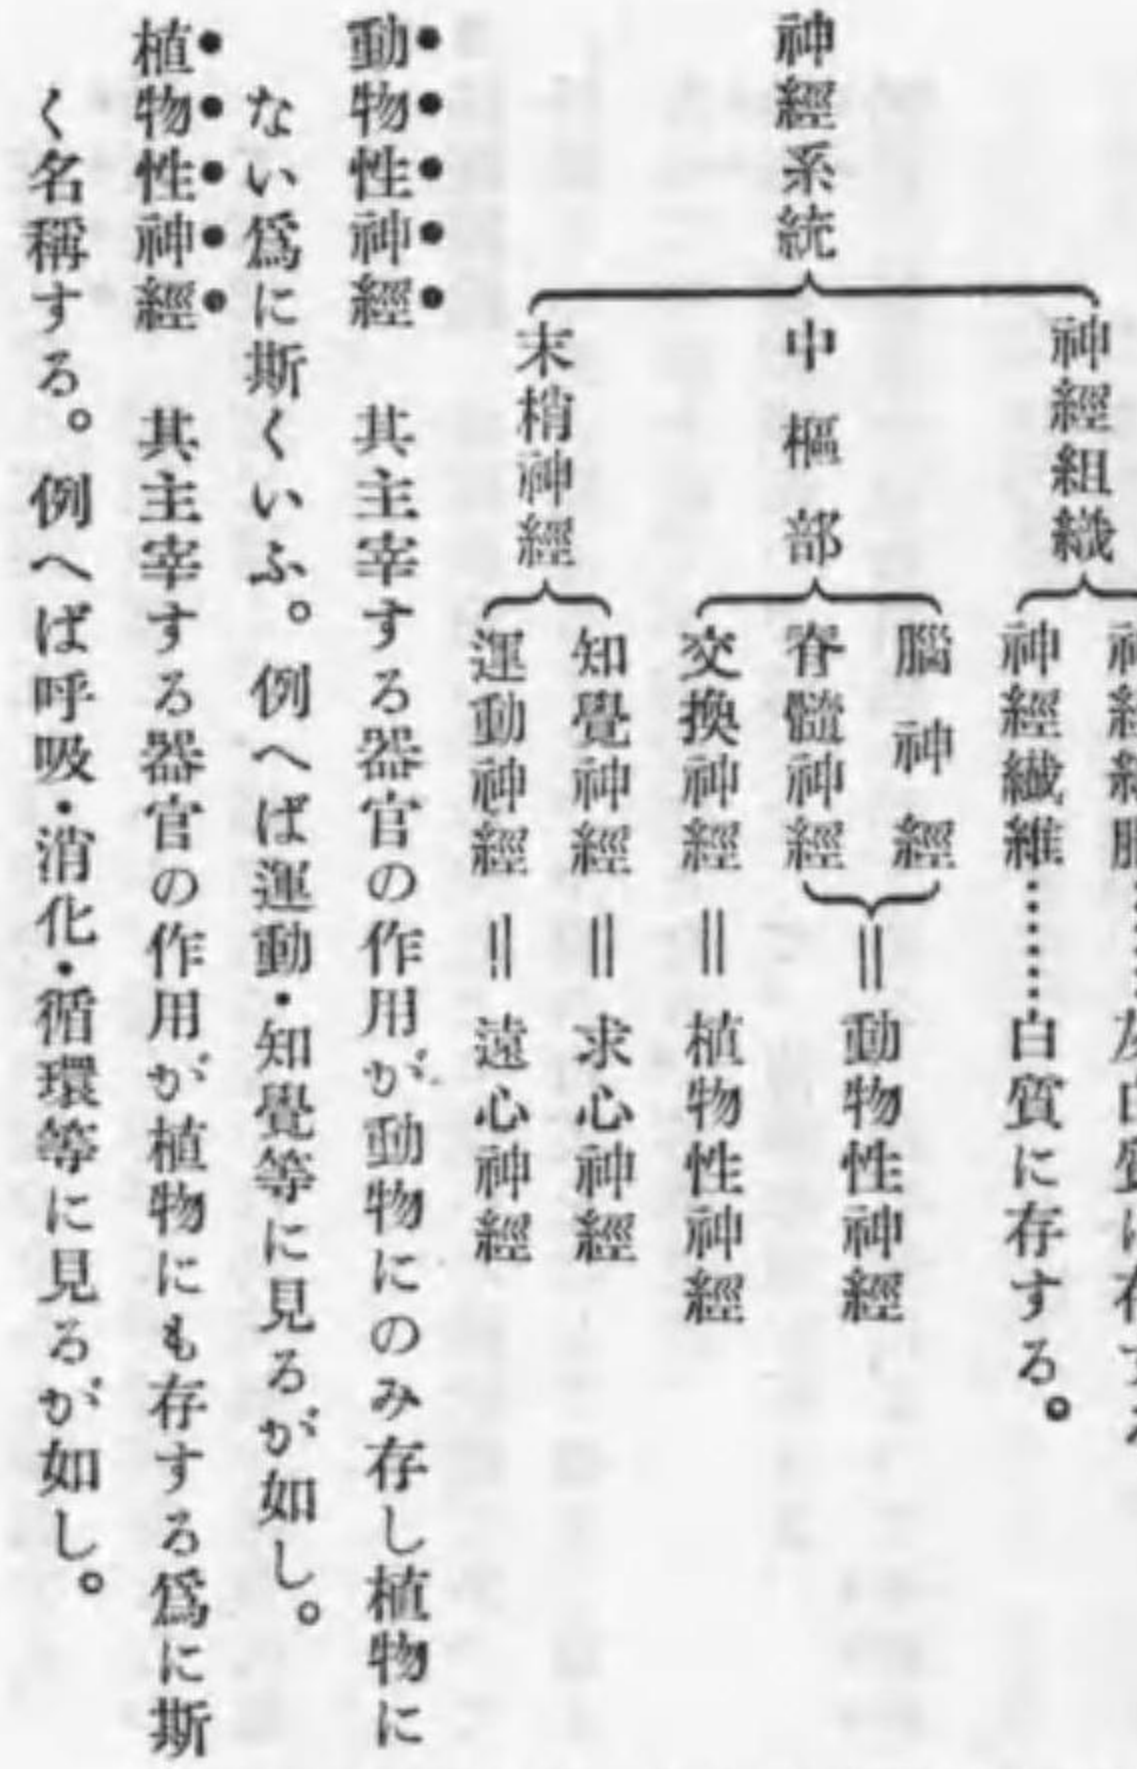 神經系統
神經組織
神經纎維……白質に存する。
中樞部
腦神經
脊髓神經
動物性神經
交換神經=植物性神經
末梢神經
知覺神經=求心神經
運動神經=遠心神經
動物性神經　其主宰する器官の作用が動物にのみ存し植物に
ない爲に斯くいふ。例へば運動・知覺等に見るが如し。
植物性神經　其主宰する器官の作用が植物にも存する爲に斯
く名稱する。例へば呼吸・消化・循環等に見るが如し。